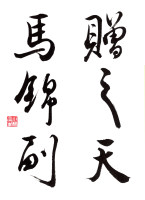 贈之天
馬錦副